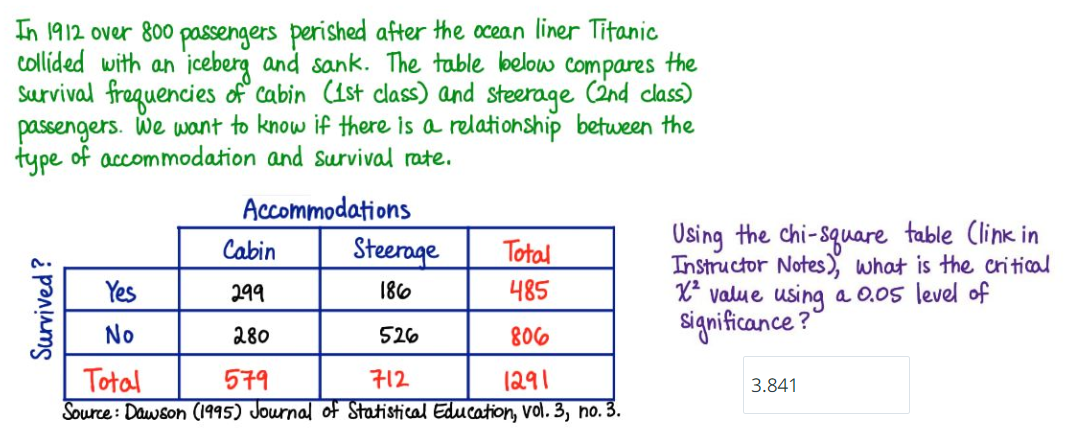 In 1912 over 800 passengers perished after the ocean liner Titanic
collided with an iceberg and sank. The table below compares the
survival frequencies of cabin (1st class) and steerage (2nd class)
passengers. We want to know if there is a relationship between the
type of accommodation and survival rate.
Accommodations
Cabin Steerage Total
Survived?
Yes 299 186 485
No 280 526 806
Total 579 712 1291
Source: Dawson (1995) Journal of Statistical Education, vol. 3, no. 3.
Using the chi-square table (link in
Instructor Notes), what is the critical
χ² value using a 0.05 level of
significance?
3.841